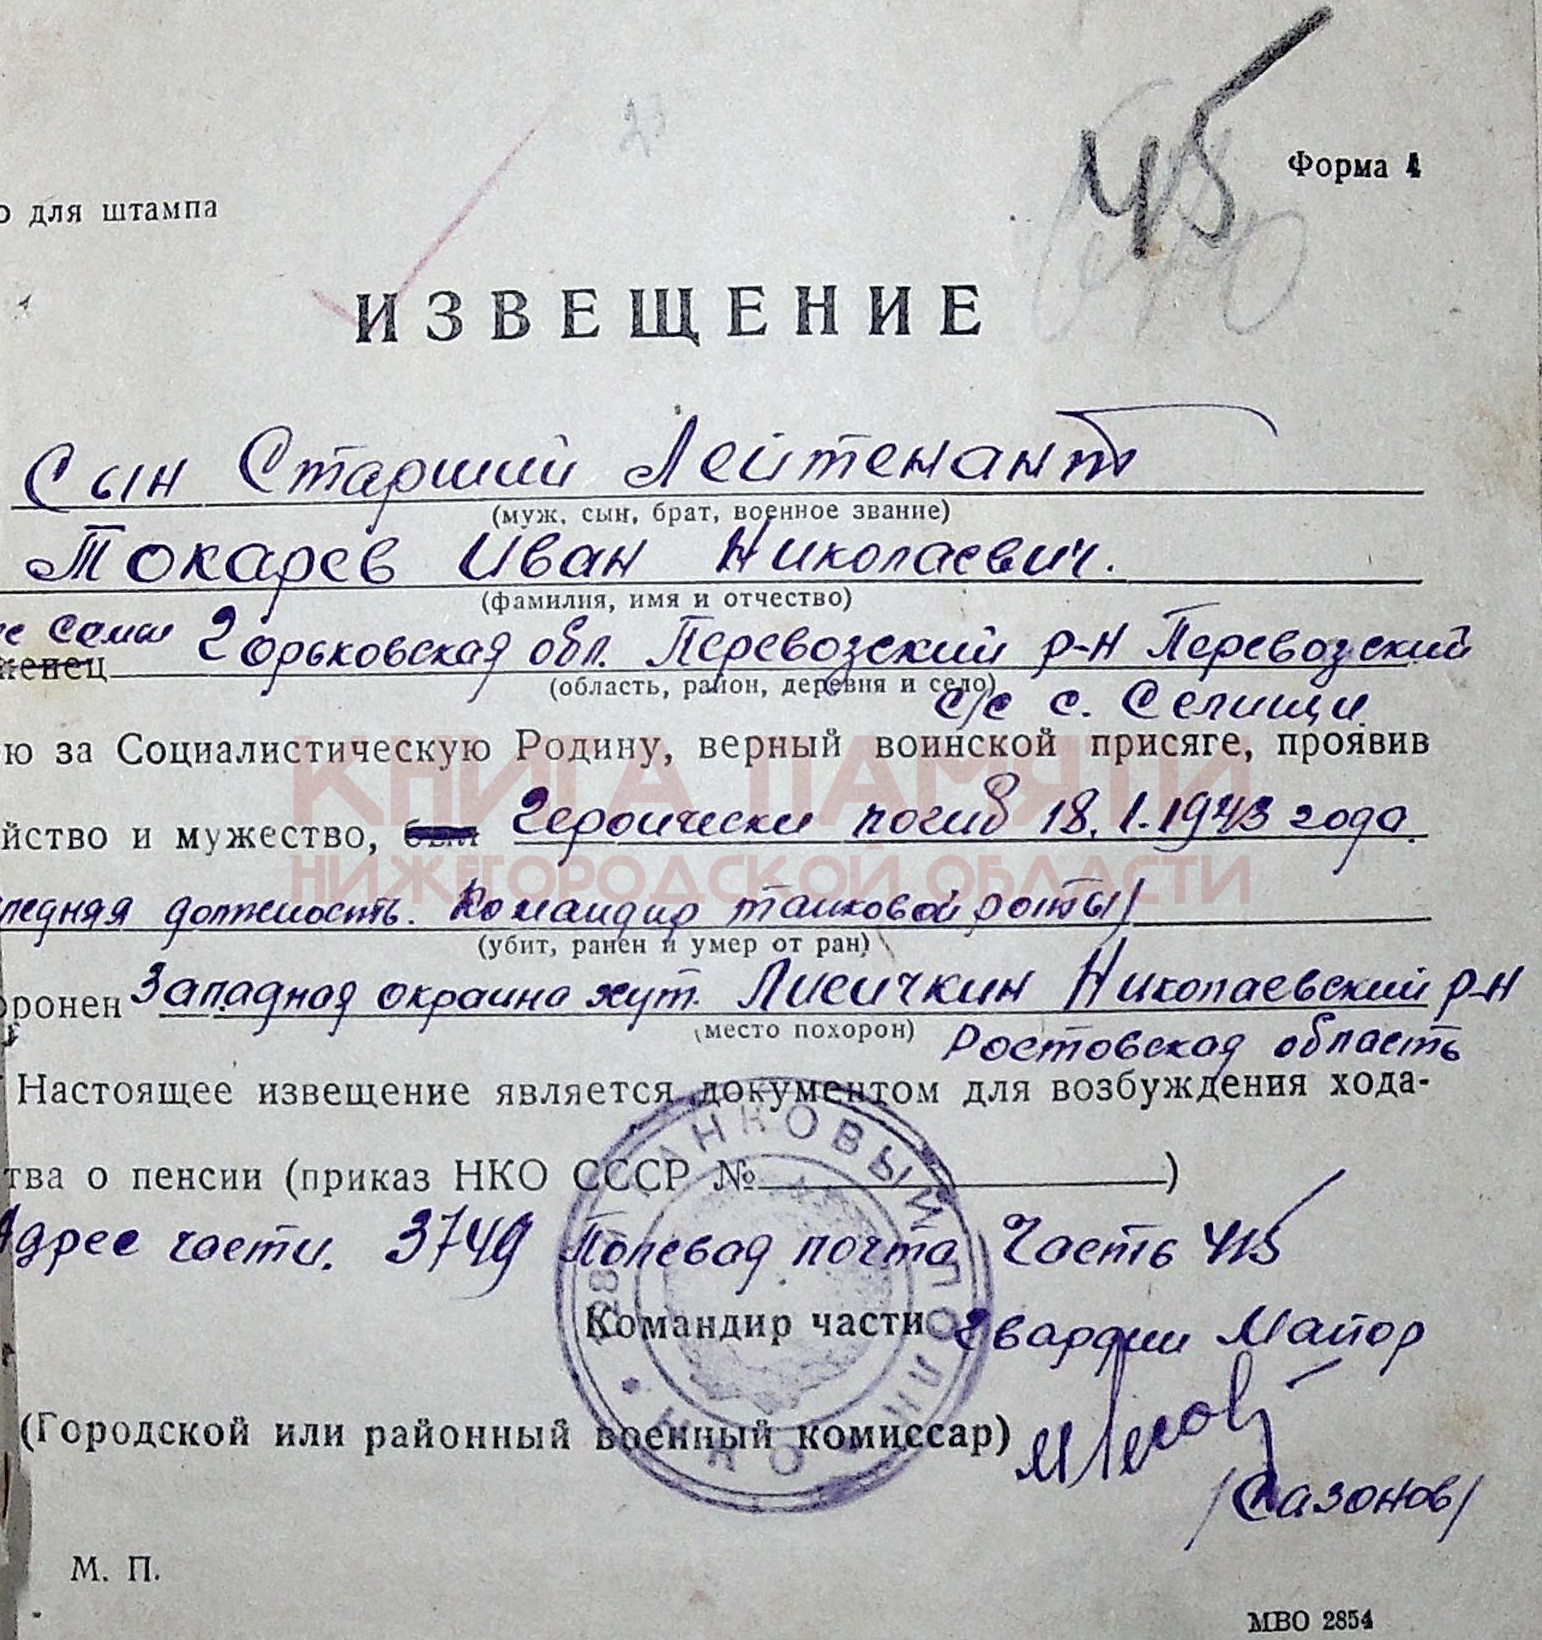 45
Форма 4
о для штампа
ИЗВЕЩЕНИЕ
Сын Старший Лейтенант
(муж, сын, брат, военное звание)
Токарев Иван Николаевич.
(фамилия, имя и отчество)
Горьковская обл. Перевозский р-н Перевозский
женец
(область, район, деревня и село)
с/с с. Селищи
ю за Социалистическую Родину, верный воинской присяге, проявив
йство и мужество, был Героически погиб 18.1.1943 года.
ледняя должность. Командир танковой роты/
(убит, ранен и умер от ран)
оронен Западная окраина хут. Лисичкин Николаевский р-н
(место похорон)
Ростовская область
Настоящее извещение является документом для возбуждения хода-
тва о пенсии (приказ НКО СССР № )
Адрес части. 3749 Полевая почта Часть 415
Командир части Гвардии Майор
(Городской или районный военный комиссар)
/Сазонов/
ТАНКОВЫЙ ПОЛК
НКО
М. П.
МВО 2854
КНИГА ПАМЯТИ
НИЖЕГОРОДСКОЙ ОБЛАСТИ